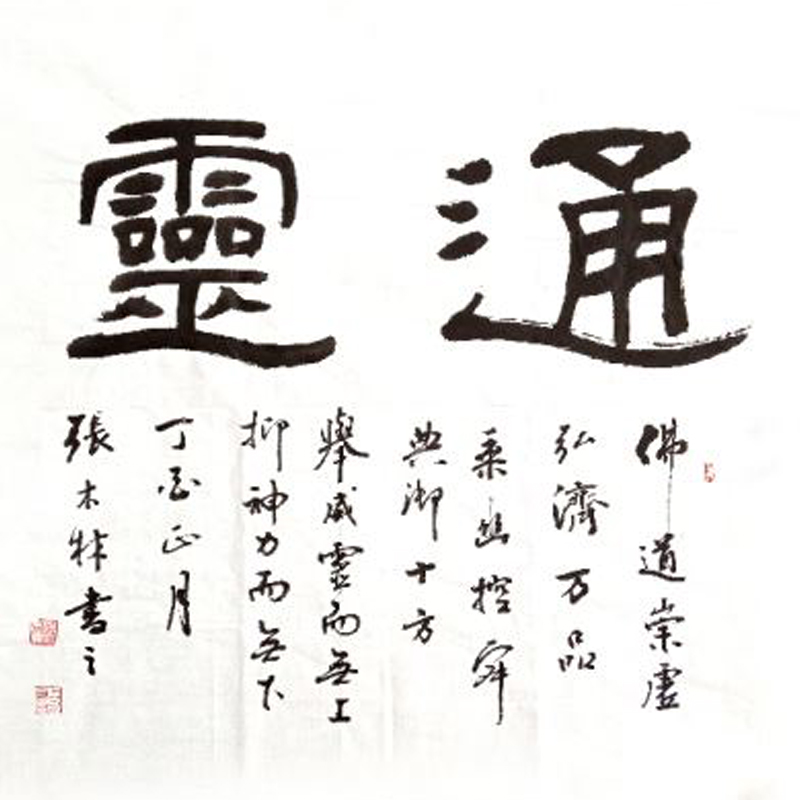 通靈
佛道崇虛
弘濟万品
乗幽控寂
典御十方
舉威靈而無上
抑神力而無下
丁酉正月
張木林書之